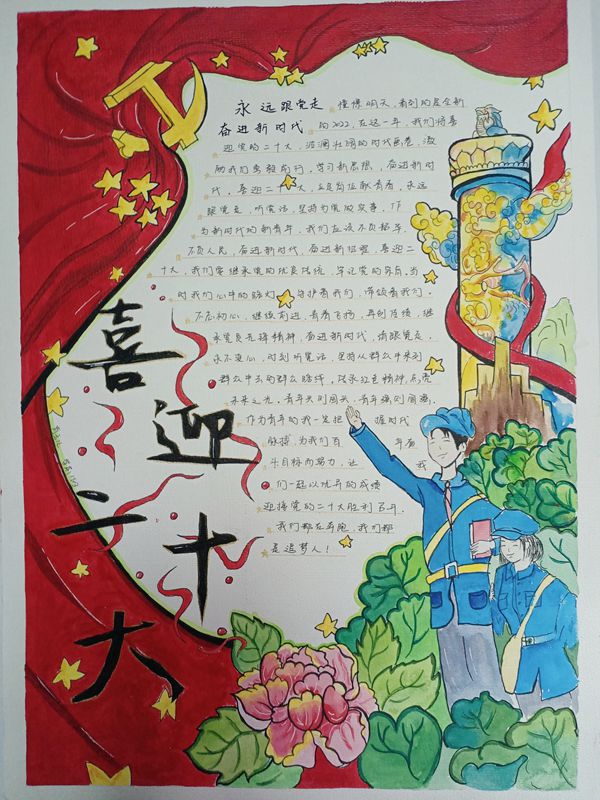 喜迎二十大
永远跟党走 憧憬明天,看到的是全新
奋进新时代 的2022,在这一年,我们将喜
迎党的二十大,波澜壮阔的时代画卷,激
励我们勇毅前行,学习新思想,奋进新时
代,喜迎二十大,
跟党走,听党话,坚持为党的故事,作
为新时代的新青年,我们应该不负韶华,
不负人民,奋进新时代,奋进新征程,喜迎二
十大,我们要继承党的优良传统,牢记党的宗旨,当
时我们心中的路灯,守护着我们,带领着我们。
不忘初心,继续前进,青春飞扬,再创佳绩,继
承党员先锋精神,奋进新时代,请跟党走,
永不变心,时刻听党话,坚持从群众中来到
群众中去的群众路线,传承红色精神,点亮
未来之光,青年兴则国兴,青年强则国强,
作为青年的我一定把握时代
脉搏,为我们百年
斗目标而努力,让我
们一起以优异的成绩
迎接党的二十大胜利召开,
我们都在奔跑,我们都
是追梦人!